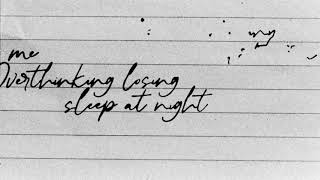 my
me
Overthinking losing
sleep at night